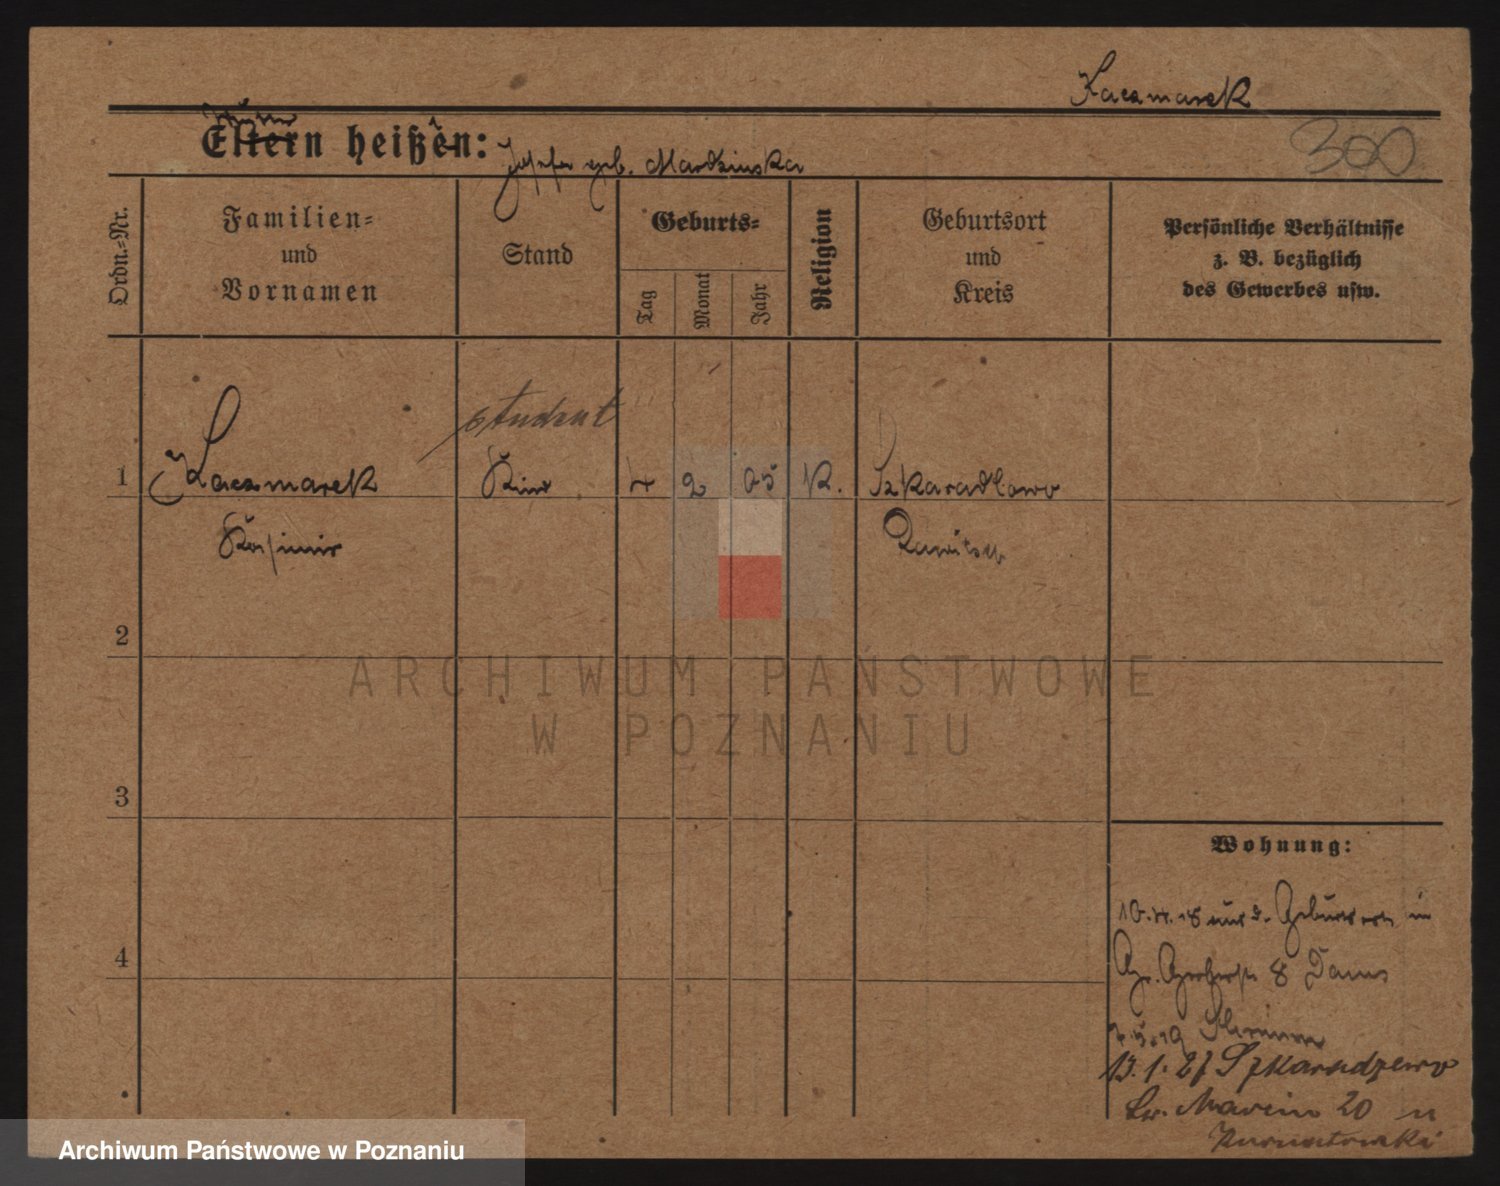 Kaczmarek
300
Eltern heißen:
Josefa geb. Mardzinska
Ordn.-Nr.
Familien-
und
Vornamen
Stand
Geburts-
Tag
Monat
Jahr
Religion
Geburtsort
und
Kreis
Persönliche Verhältnisse
z. B. bezüglich
des Gewerbes usw.
student
1
Kaczmarek
Kind
4
2
05
K.
Szkaradlowo
Kasimir
Rawitsch
2
3
4
Wohnung:
10.4.18 aus d. Geburtsort in
Gr. Gerberstr. 8
Schrimm
13.1.27 Szkaradzewo
Św. Marcin 20 u
ARCHIWUM PAŃSTWOWE
W POZNANIU
Archiwum Państwowe w Poznaniu